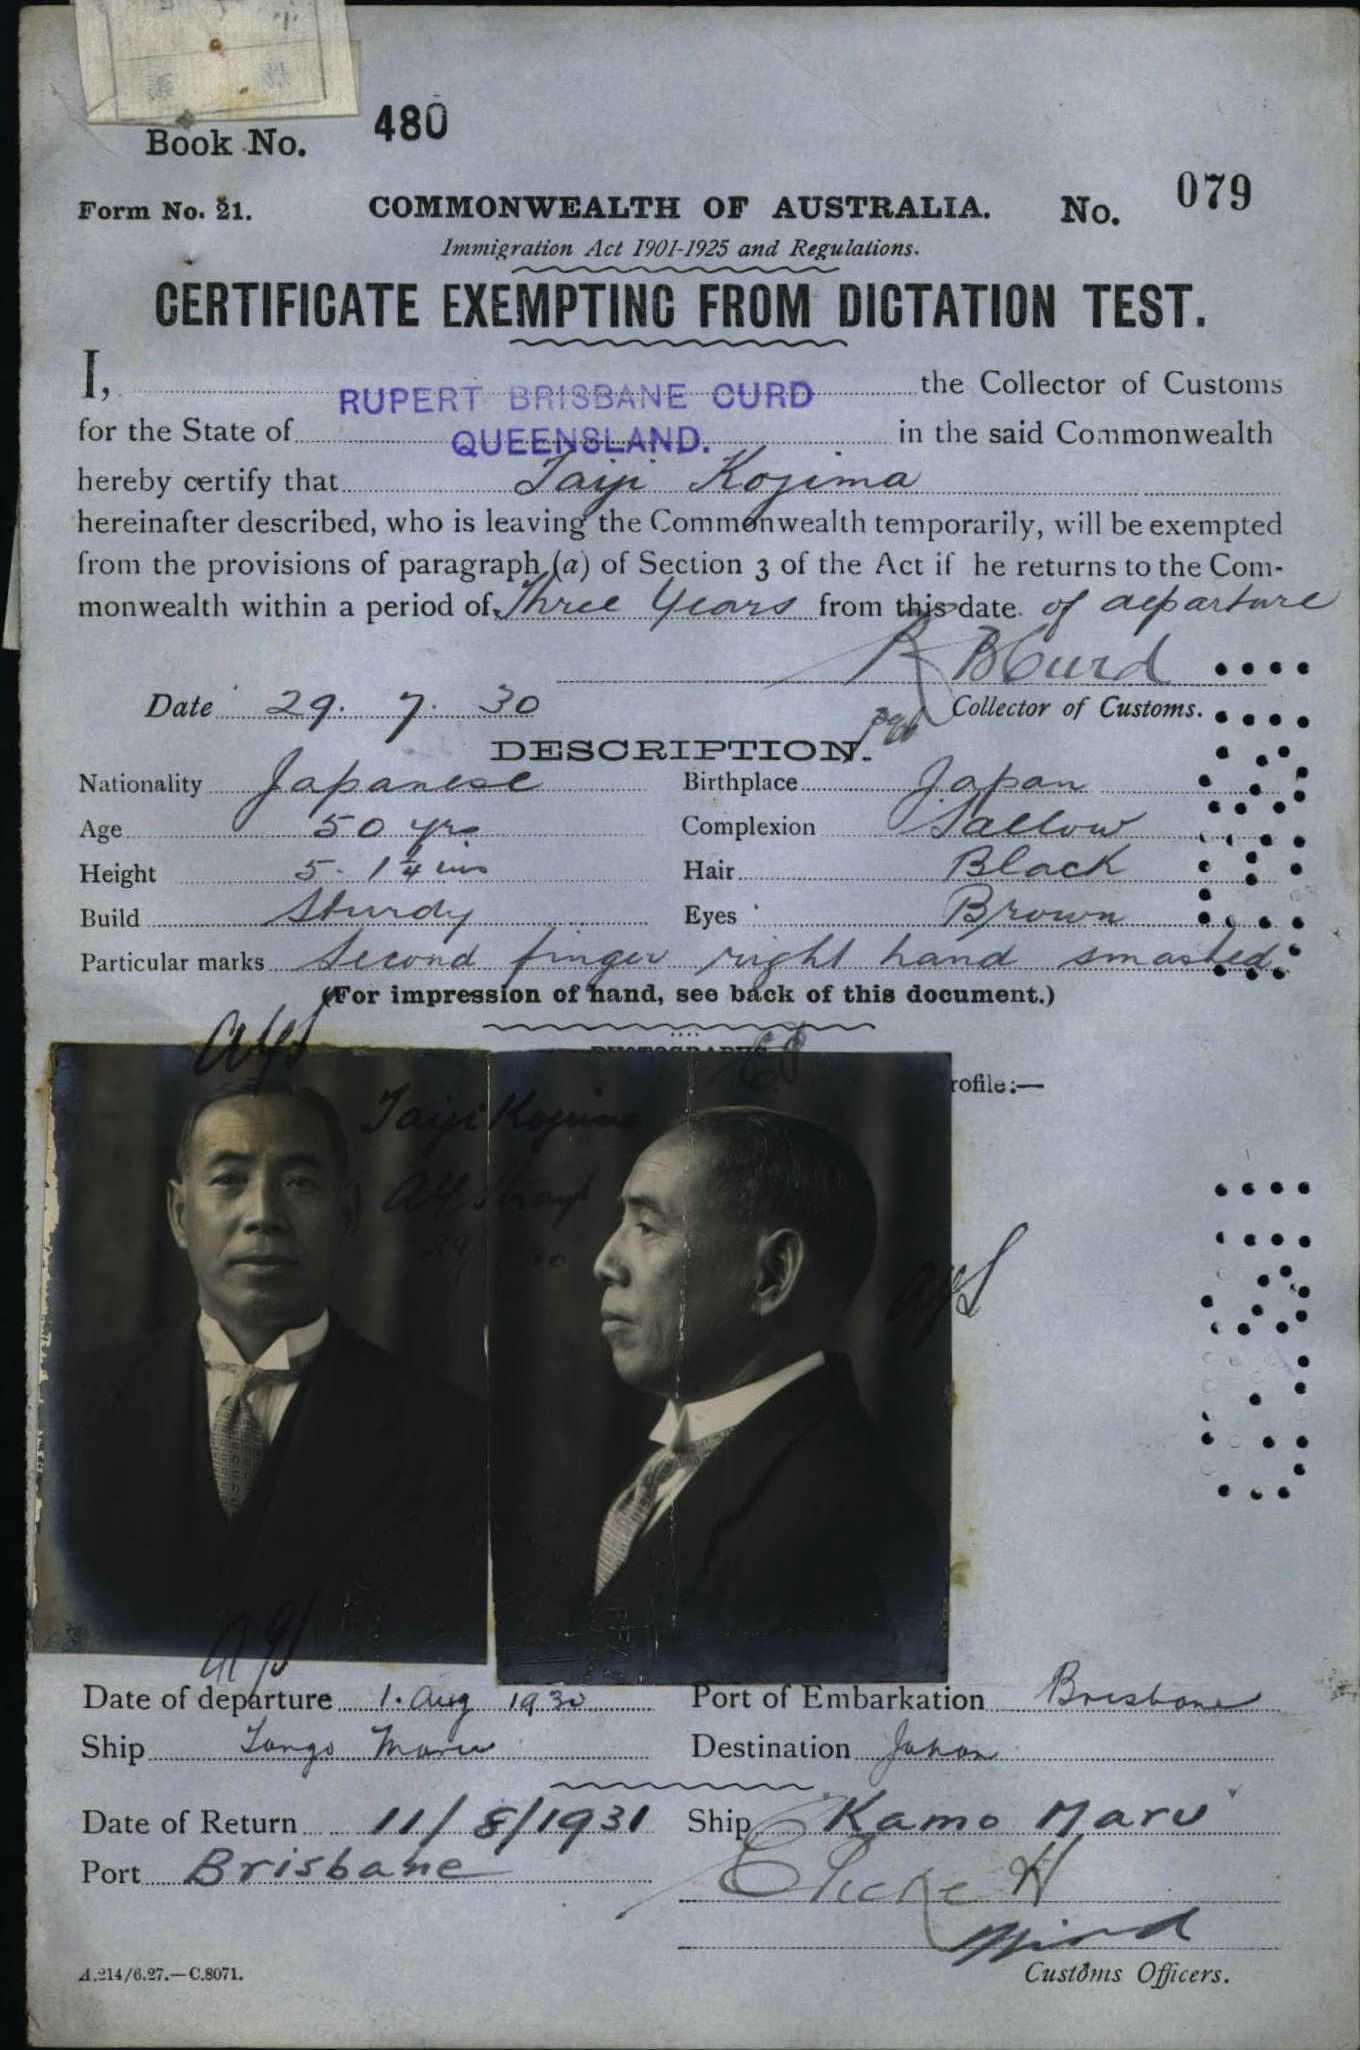 Book No. 480
Form No. 21. COMMONWEALTH OF AUSTRALIA. No. 079
Immigration Act 1901-1925 and Regulations.
CERTIFICATE EXEMPTING FROM DICTATION TEST.
I, RUPERT BRISBANE CURD the Collector of Customs
for the State of QUEENSLAND. in the said Commonwealth
hereby certify that Taiji Kojima
hereinafter described, who is leaving the Commonwealth temporarily, will be exempted
from the provisions of paragraph (a) of Section 3 of the Act if he returns to the Com-
monwealth within a period of Three Years from this date of departure
R B Curd
Date 29. 7. 30 Collector of Customs.
DESCRIPTION.
Nationality Japanese Birthplace Japan
Age 50 yrs Complexion Sallow
Height 5. 1 1/4 ins Hair Black
Build Sturdy Eyes Brown
Particular marks Second finger right hand smashed
(For impression of hand, see back of this document.)
PHOTOGRAPHS
rofile:—
Taiji Kojima
Date of departure 1. Aug 1930 Port of Embarkation Brisbane
Ship Tango Maru Destination Japan
Date of Return 11/8/1931 Ship "Kamo Maru"
Port Brisbane
A.214/6.27.—C.8071. Customs Officers.